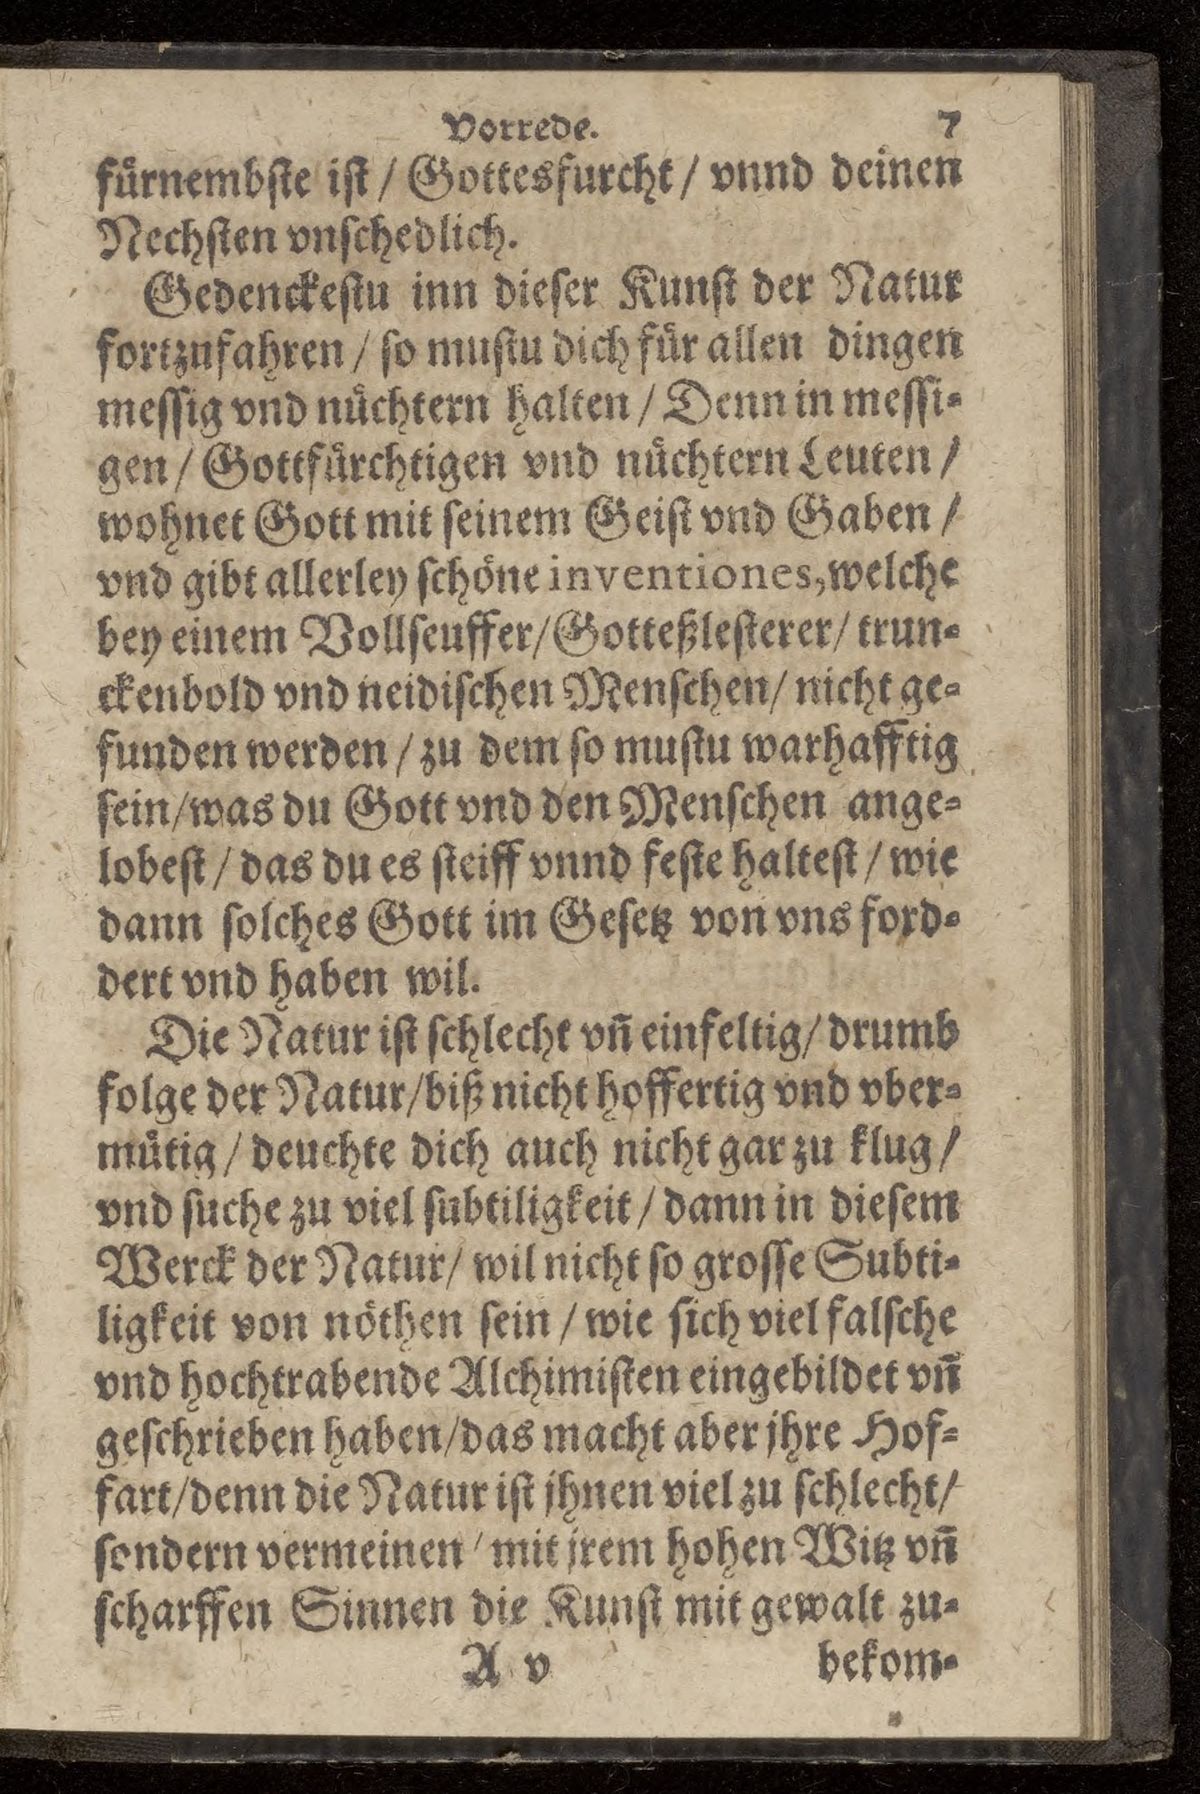 Vorrede. 7
fürnembste ist / Gottesfurcht / vnnd deinen
Nechsten vnschedlich.
Gedenckestu inn dieser Kunst der Natur
fortzufahren / so mustu dich für allen dingen
messig vnd nüchtern halten / Denn in messi-
gen / Gottfürchtigen vnd nüchtern Leuten /
wohnet Gott mit seinem Geist vnd Gaben /
vnd gibt allerley schöne inventiones, welche
bey einem Vollseuffer / Gotteßlesterer / trun-
ckenbold vnd neidischen Menschen / nicht ge-
funden werden / zu dem so mustu warhafftig
sein / was du Gott vnd den Menschen ange-
lobest / das du es steiff vnnd feste haltest / wie
dann solches Gott im Gesetz von vns ford-
dert vnd haben wil.
Die Natur ist schlecht vñ einfeltig / drumb
folge der Natur / biß nicht hoffertig vnd vber-
mütig / deuchte dich auch nicht gar zu klug /
vnd suche zu viel subtiligkeit / dann in diesem
Werck der Natur / wil nicht so grosse Subti-
ligkeit von nöthen sein / wie sich viel falsche
vnd hochtrabende Alchimisten eingebildet vñ
geschrieben haben / das macht aber jhre Hof-
fart / denn die Natur ist jhnen viel zu schlecht /
sondern vermeinen / mit jrem hohen Witz vñ
scharffen Sinnen die Kunst mit gewalt zu-
A v bekom-